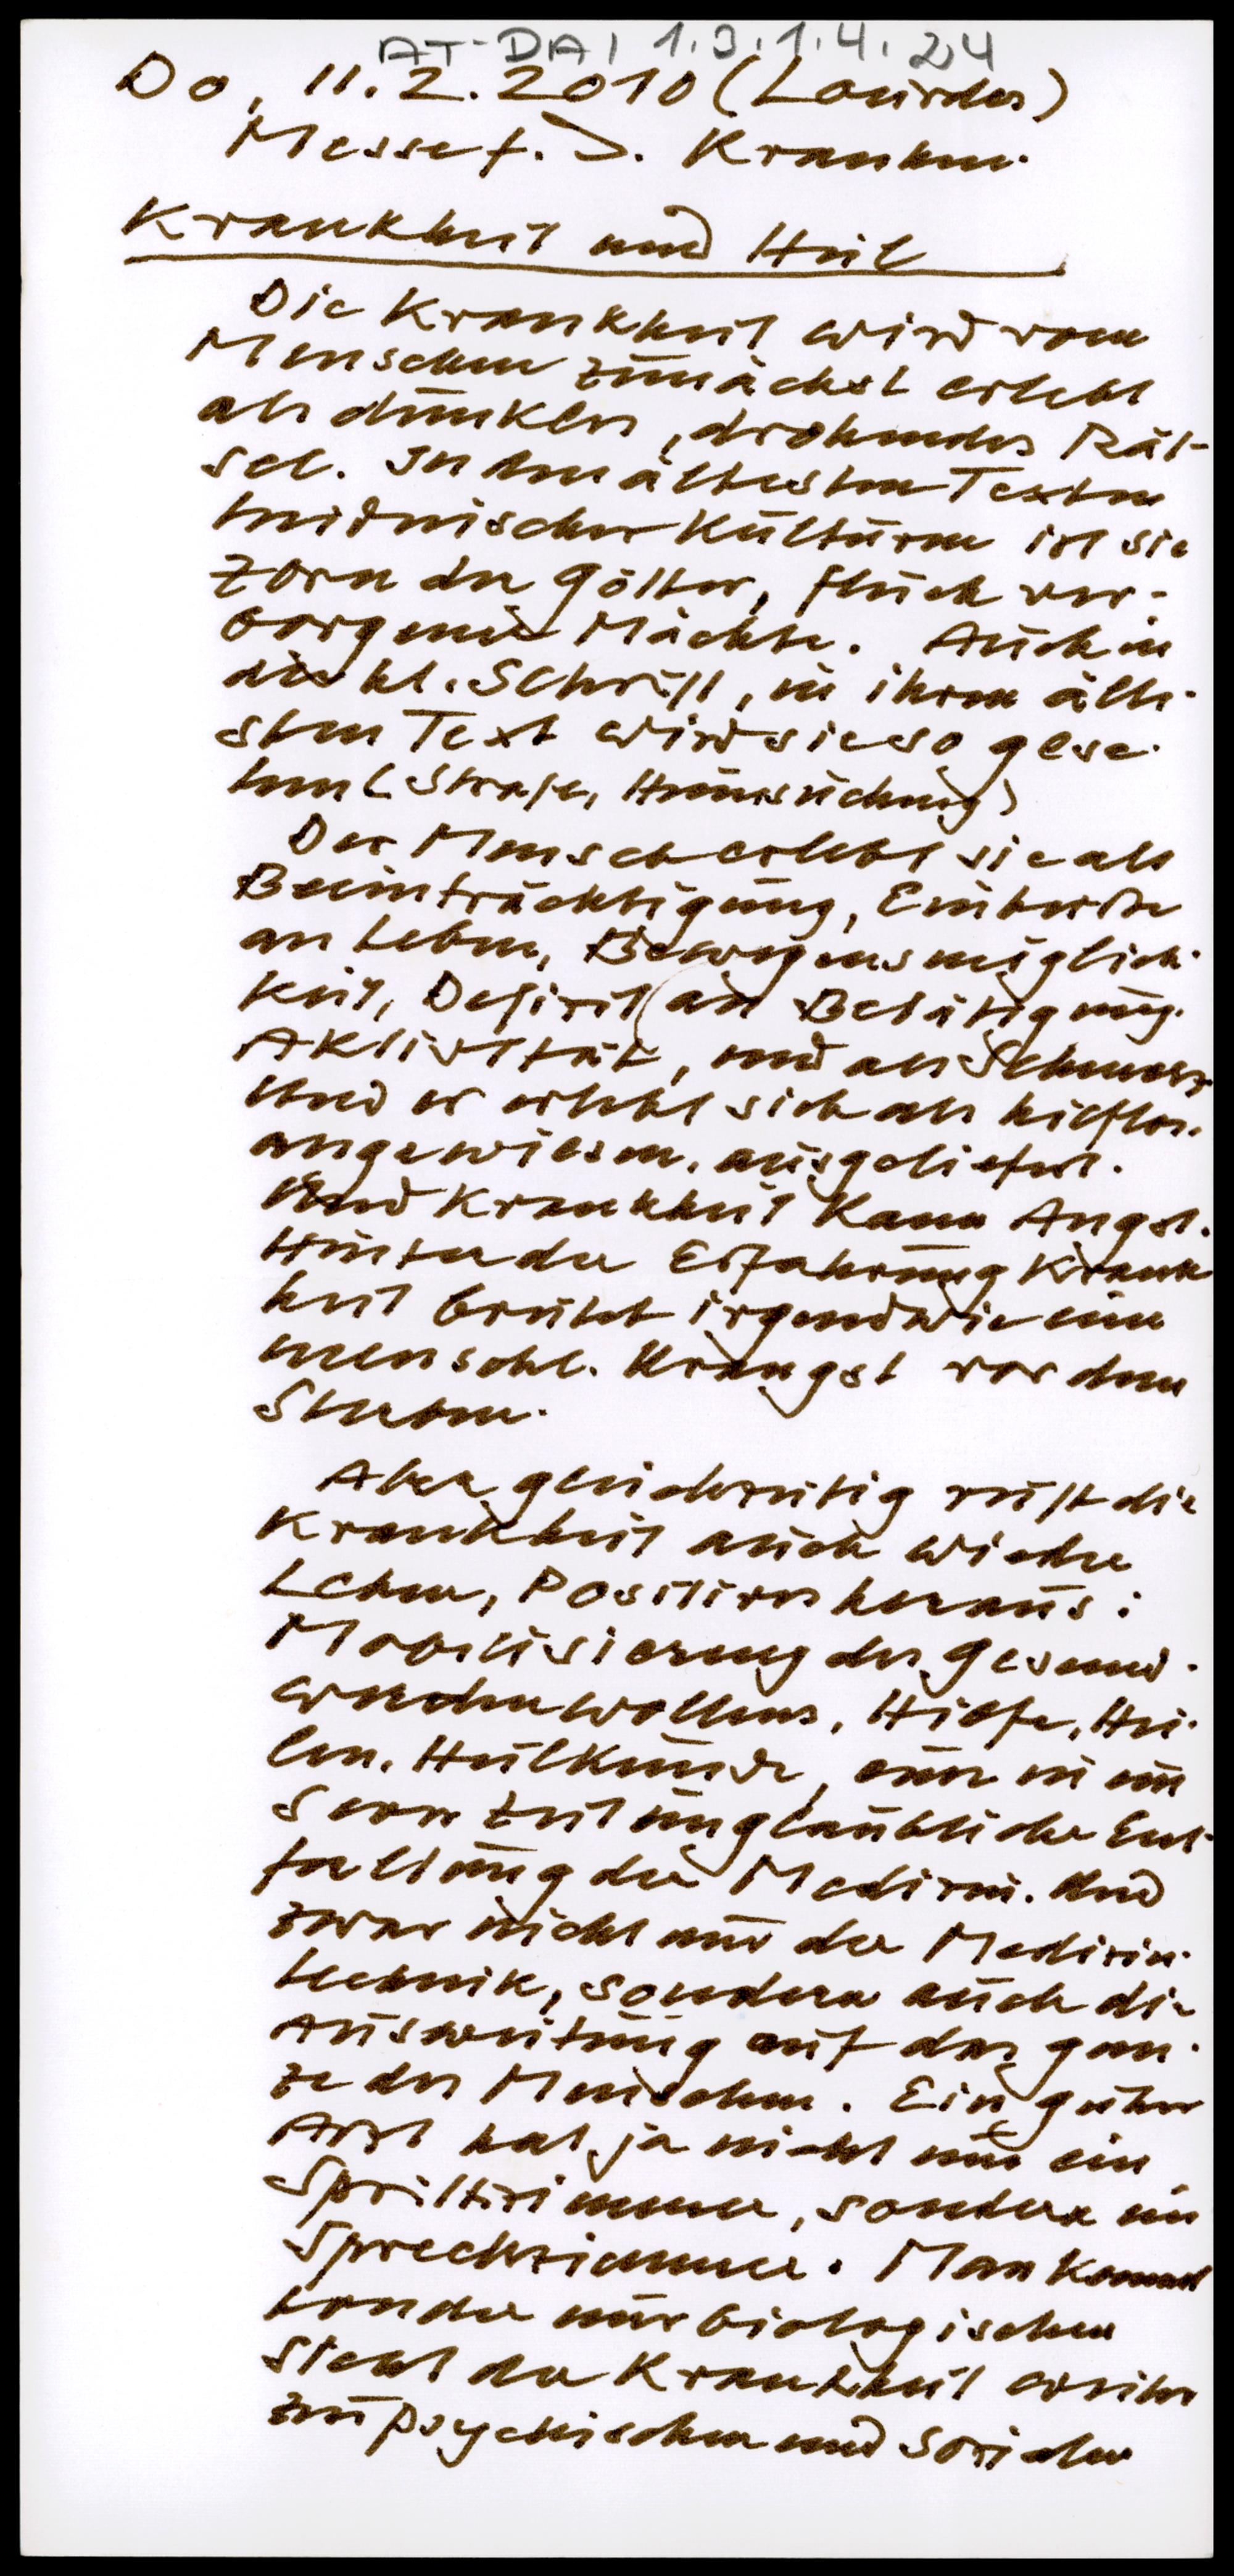 AT-DA, 1.3.1.4.24
Do, 11.2.2010 (Lourdes)
Messe f. d. Kranken.
Krankheit und Heil
Die Krankheit wird vom
Menschen zunächst erlebt
als dunkles, drohendes Rät-
sel. In den ältesten Texten
heidnischer Kulturen ist sie
Zorn der Götter, Fluch ver-
borgener Mächte. Auch in
der hl. Schrift, in ihren älte-
sten Text wird sie so gese-
hen (Strafe, Heimsuchung)
Der Mensch erlebt sie als
Beeinträchtigung, Einbuße
an Leben, Bewegungsmöglich-
keit, Defizit an Betätigung.
Aktivität, und als Schmerz.
Und er erlebt sich als hilflos.
angewiesen. ausgeliefert.
Und Krankheit kann Angst.
Hinter der Erfahrung Krank
heit brütet irgendwie eine
menschl. Urangst vor dem
Sterben.
Aber gleichzeitig ruft die
Krankheit auch wieder
Leben, Positives heraus:
Mobilisierung des gesund-
werdenwollens, Hilfe, Hei-
len. Heilkunde, eine in un
serer Zeit unglaubliche Ent-
faltung der Medizin. Und
zwar nicht nur der Medizin-
technik, sondern auch die
Ausweitung auf das gan-
ze des Menschen. Ein guter
Arzt hat ja nicht nur ein
Spritzzimmer, sondern ein
Sprechzimmer. Man kommt
von der nur biologischen
Sicht der Krankheit weiter
zur psychischen und sozialen